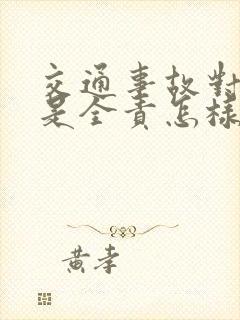 交通事故對
是全責怎樣
黃孝